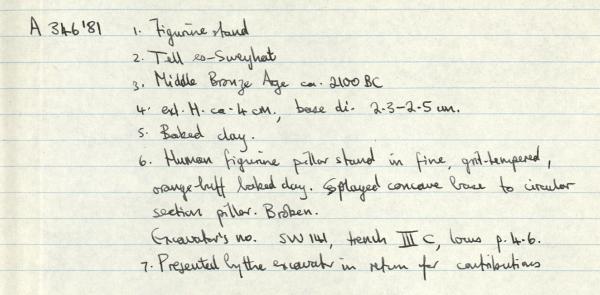 A 346'81 1. Figurine stand
2. Tell es-Sweyhat
3. Middle Bronze Age ca. 2100 BC
4. ext. H. ca. 4 cm., base di. 2.3-2.5 cm.
5. Baked clay.
6. Human figurine pillar stand in fine, grit-tempered,
orange-buff baked clay. Splayed concave base to circular
section pillar. Broken.
Excavator's no. SW 141, trench III C, locus p. 4.6.
7. Presented by the excavator in return for contributions